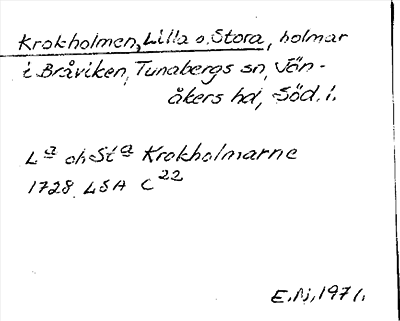 Krokholmen, Lilla o. Stora, holmar
i Bråviken, Tunabergs sn, Jön-
åkers hd, Söd. l.
Lª oh Stª Krokholmarne
1728 LSA C 22
E.Nj. 1971.